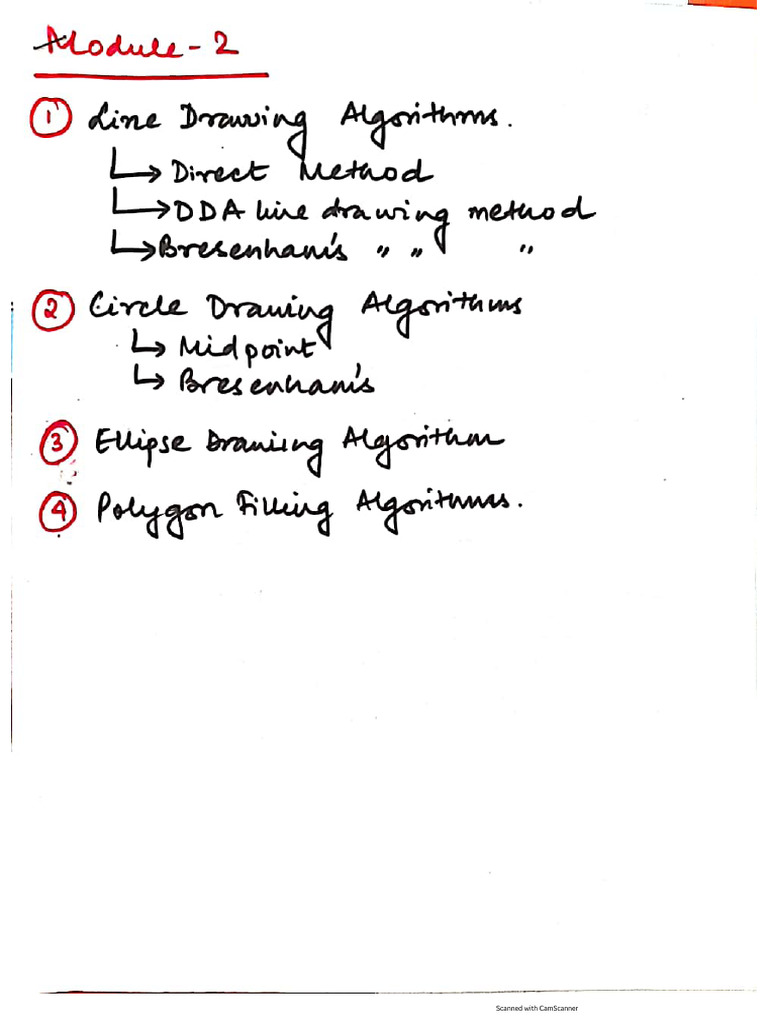 Module-2
① Line Drawing Algorithms.
↳ Direct Method
↳ DDA line drawing method
↳ Bresenham's " " "
② Circle Drawing Algorithms
↳ Midpoint
↳ Bresenham's
③ Ellipse Drawing Algorithm
④ Polygon Filling Algorithms.
Scanned with CamScanner